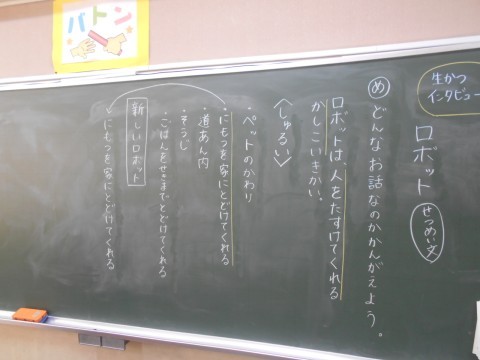 バトン
生かつ
インタビュー
ロボット
せつめい文
め どんなお話なのかかんがえよう。
ロボットは、人をたすけてくれる
かしこいきかい。
〈しゅるい〉
・ペットのかわり
・にもつを家にとどけてくれる
・道あん内
・そうじ
・ごはんをせきまでとどけてくれる
新しいロボット
にもつを家にとどけてくれる